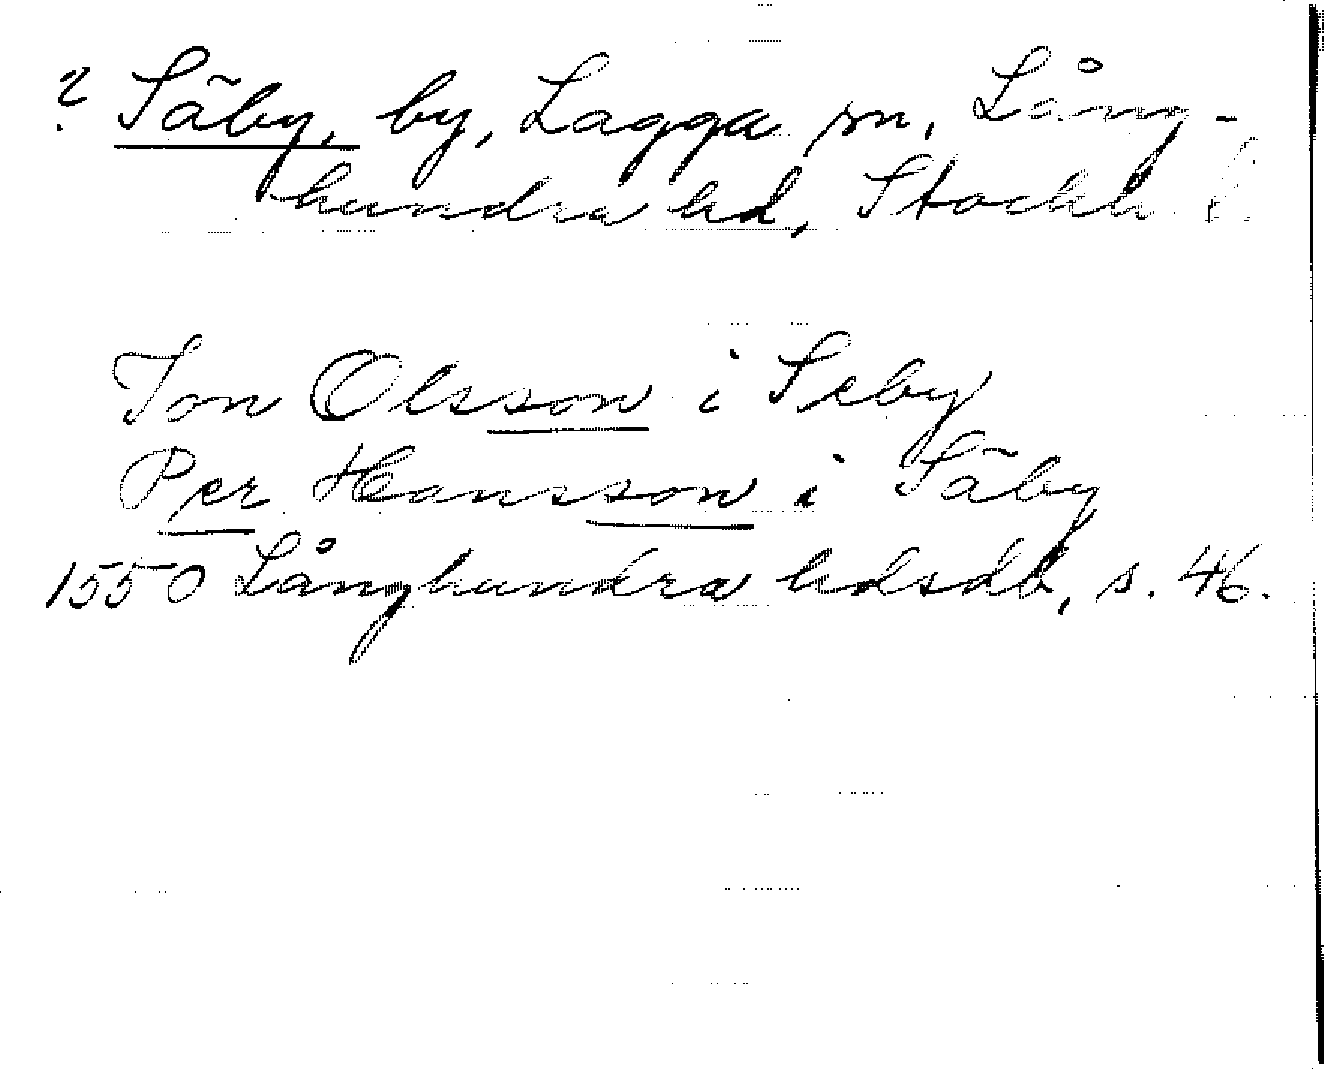 ? Säby, by, Lagga sn, Lång-
hundra hd, Stockh. l.
Jon Olsson i Seby
Per Hansson i Säby
1550 Långhundra hdsdb, s. 46.